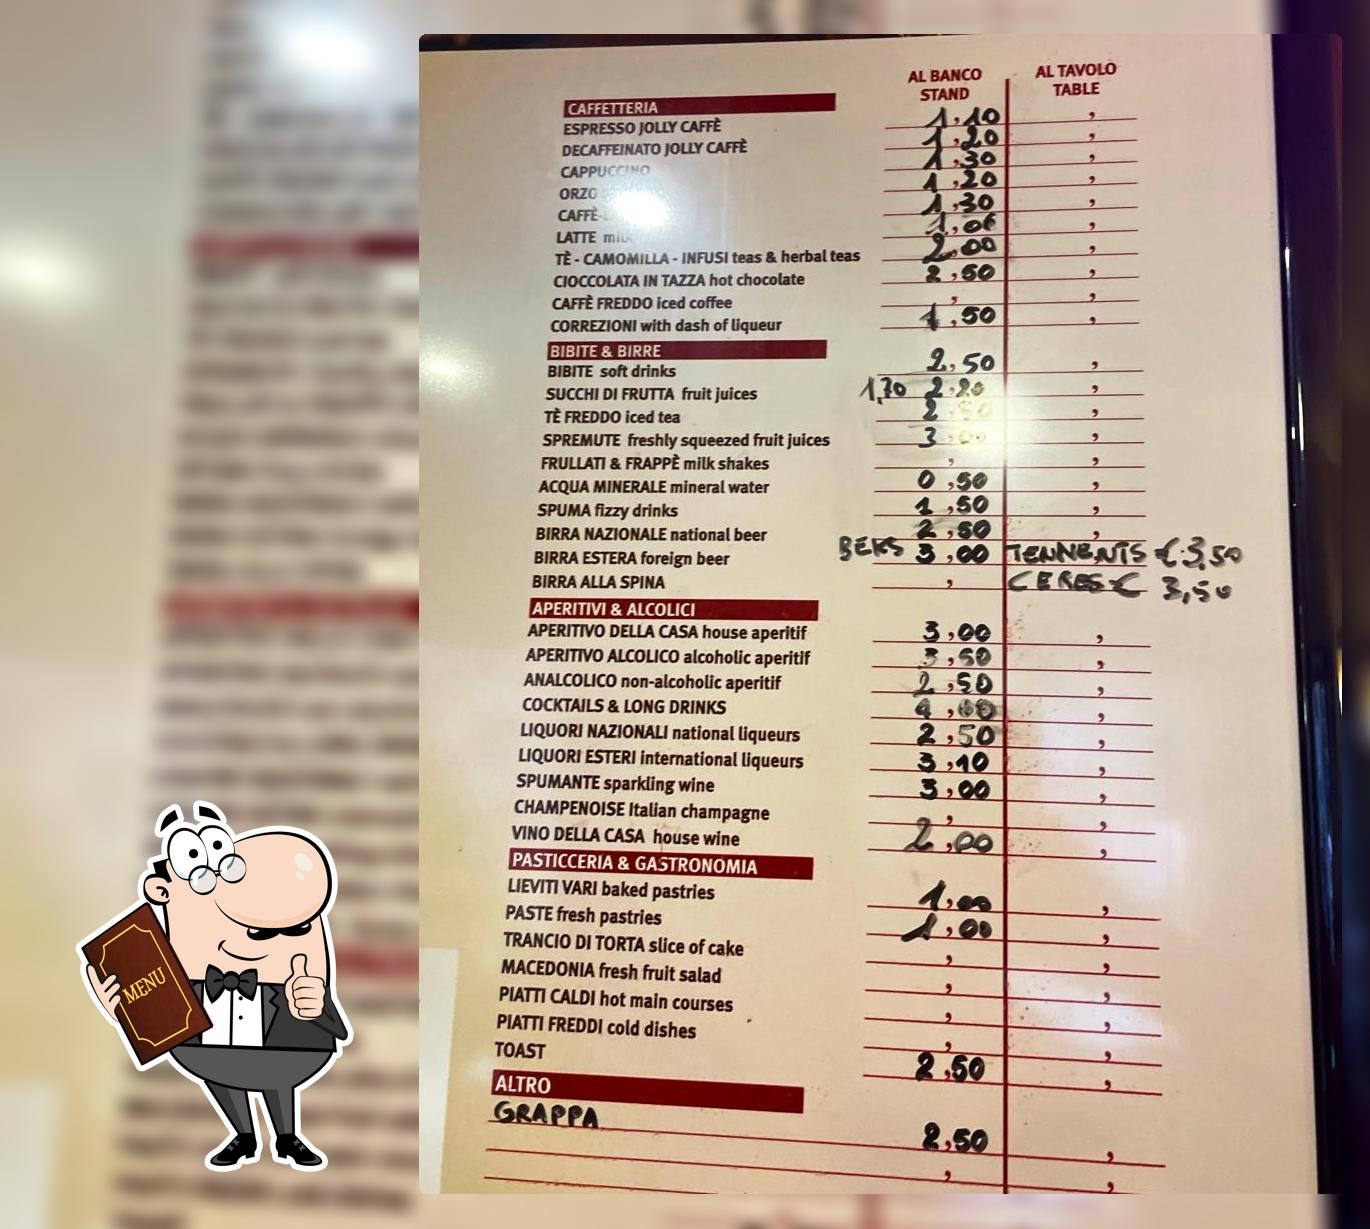 AL BANCO AL TAVOLO
STAND TABLE
CAFFETTERIA
ESPRESSO JOLLY CAFFÈ 1,10 ,
DECAFFEINATO JOLLY CAFFÈ 1,20 ,
CAPPUCCINO 1,30 ,
ORZO 1,20 ,
CAFFÈ- 1,30 ,
LATTE milk 1,00 ,
TÈ - CAMOMILLA - INFUSI teas & herbal teas 2,00 ,
CIOCCOLATA IN TAZZA hot chocolate 2,50 ,
CAFFÈ FREDDO iced coffee , ,
CORREZIONI with dash of liqueur 1,50 ,
BIBITE & BIRRE
BIBITE soft drinks 2,50 ,
SUCCHI DI FRUTTA fruit juices 1,70 2,20 ,
TÈ FREDDO iced tea 2,50 ,
SPREMUTE freshly squeezed fruit juices 3,00 ,
FRULLATI & FRAPPÈ milk shakes , ,
ACQUA MINERALE mineral water 0,50 ,
SPUMA fizzy drinks 1,50 ,
BIRRA NAZIONALE national beer 2,50 ,
BIRRA ESTERA foreign beer BEKS 3,00 TENNENTS € 3,50
BIRRA ALLA SPINA , CERES € 3,50
APERITIVI & ALCOLICI
APERITIVO DELLA CASA house aperitif 3,00 ,
APERITIVO ALCOLICO alcoholic aperitif 3,50 ,
ANALCOLICO non-alcoholic aperitif 2,50 ,
COCKTAILS & LONG DRINKS 4,00 ,
LIQUORI NAZIONALI national liqueurs 2,50 ,
LIQUORI ESTERI international liqueurs 3,10 ,
SPUMANTE sparkling wine 3,00 ,
CHAMPENOISE Italian champagne , ,
VINO DELLA CASA house wine 2,00 ,
PASTICCERIA & GASTRONOMIA
LIEVITI VARI baked pastries 1,00 ,
PASTE fresh pastries 1,00 ,
TRANCIO DI TORTA slice of cake , ,
MACEDONIA fresh fruit salad , ,
PIATTI CALDI hot main courses , ,
PIATTI FREDDI cold dishes , ,
TOAST 2,50 ,
ALTRO
GRAPPA 2,50 ,
, ,
MENU